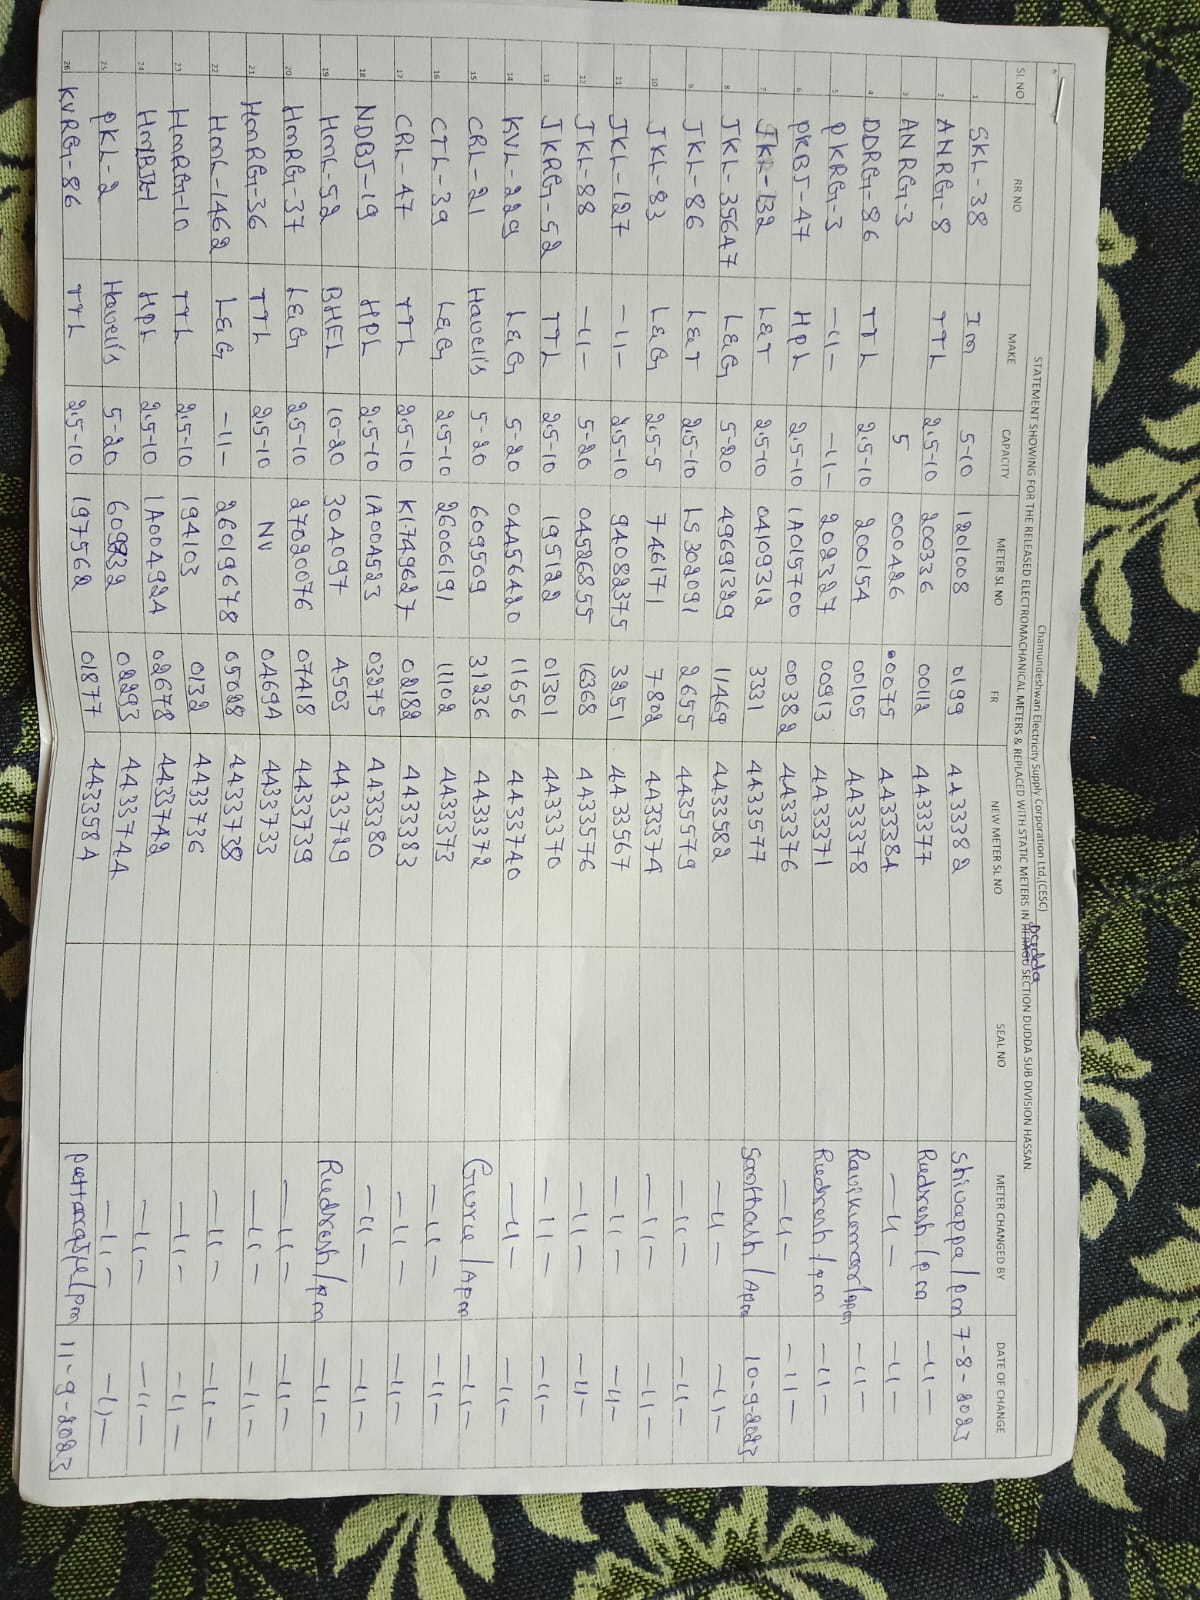 Chamundeshwari Electricity Supply Corporation Ltd,(CESC)
Dudda
STATEMENT SHOWING FOR THE RELEASED ELECTROMACHANICAL METERS & REPLACED WITH STATIC METERS IN SECTION DUDDA SUB DIVISION HASSAN.
SL NO RR NO MAKE CAPACITY METER SL NO FR NEW METER SL NO SEAL NO METER CHANGED BY DATE OF CHANGE
1 SKL-38 Im 5-10 1201008 0199 4433382 Shivappa/pm 7-8-2023
2 ANRG-8 TTL 2.5-10 200336 00112 4433377 Rudresh/pm -11-
3 ANRG-3 5 000426 00075 4433384 -11- -11-
4 DDRG-86 TTL 2.5-10 200154 00105 4433378 Ravikumar/apm -11-
5 PKRG-3 -11- -11- 202327 00913 4433371 Rudresh/pm -11-
6 PKBJ-47 HPL 2.5-10 1A015700 00382 4433376 -11- -11-
7 JKL-132 L&T 2.5-10 04109312 3331 4433577 Santhosh/Apm 10-9-2023
8 JKL-35647 L&G 5-20 49691329 11469 4433582 -11- -11-
9 JKL-86 L&T 2.5-10 LS302091 2655 4433579 -11- -11-
10 JKL-83 L&G 2.5-5 7461771 7802 4433374 -11- -11-
11 JKL-127 -11- 2.5-10 94082375 3251 4433567 -11- -11-
12 JKL-88 -11- 5-20 04526855 16368 4433576 -11- -11-
13 JKRG-52 TTL 2.5-10 195122 01301 4433370 -11- -11-
14 KVL-229 L&G 5-20 04456420 11656 4433740 -11- -11-
15 CRL-21 Havells 5-20 609509 31236 4433372 Guru/Apm -11-
16 CTL-39 L&G 2.5-10 26006191 11102 4433373 -11- -11-
17 CRL-47 TTL 2.5-10 K1749627 02182 4433383 -11- -11-
18 NDBJ-19 HPL 2.5-10 1A004523 03275 4433380 -11- -11-
19 HML-52 BHEL 10-20 304097 4503 4433729 Rudresh/pm -11-
20 HMRG-37 L&G 2.5-10 27020076 07418 4433739 -11- -11-
21 HMRG-36 TTL 2.5-10 NV 04694 4433733 -11- -11-
22 HML-1462 L&G -11- 26019678 05028 4433738 -11- -11-
23 HMRG-10 TTL 2.5-10 194103 0132 4433736 -11- -11-
24 HPL 2.5-10 1A004924 02678 4433742 -11- -11-
25 PKL-2 Havells 5-20 02293 4433744 -11- -11-
26 KVRG-86 TTL 2.5-10 197562 01877 4433584 11-9-2023